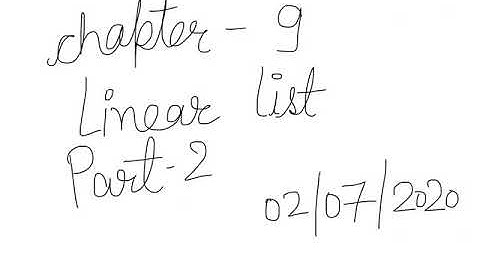 chapter - 9
Linear list
Part-2
02/07/2020